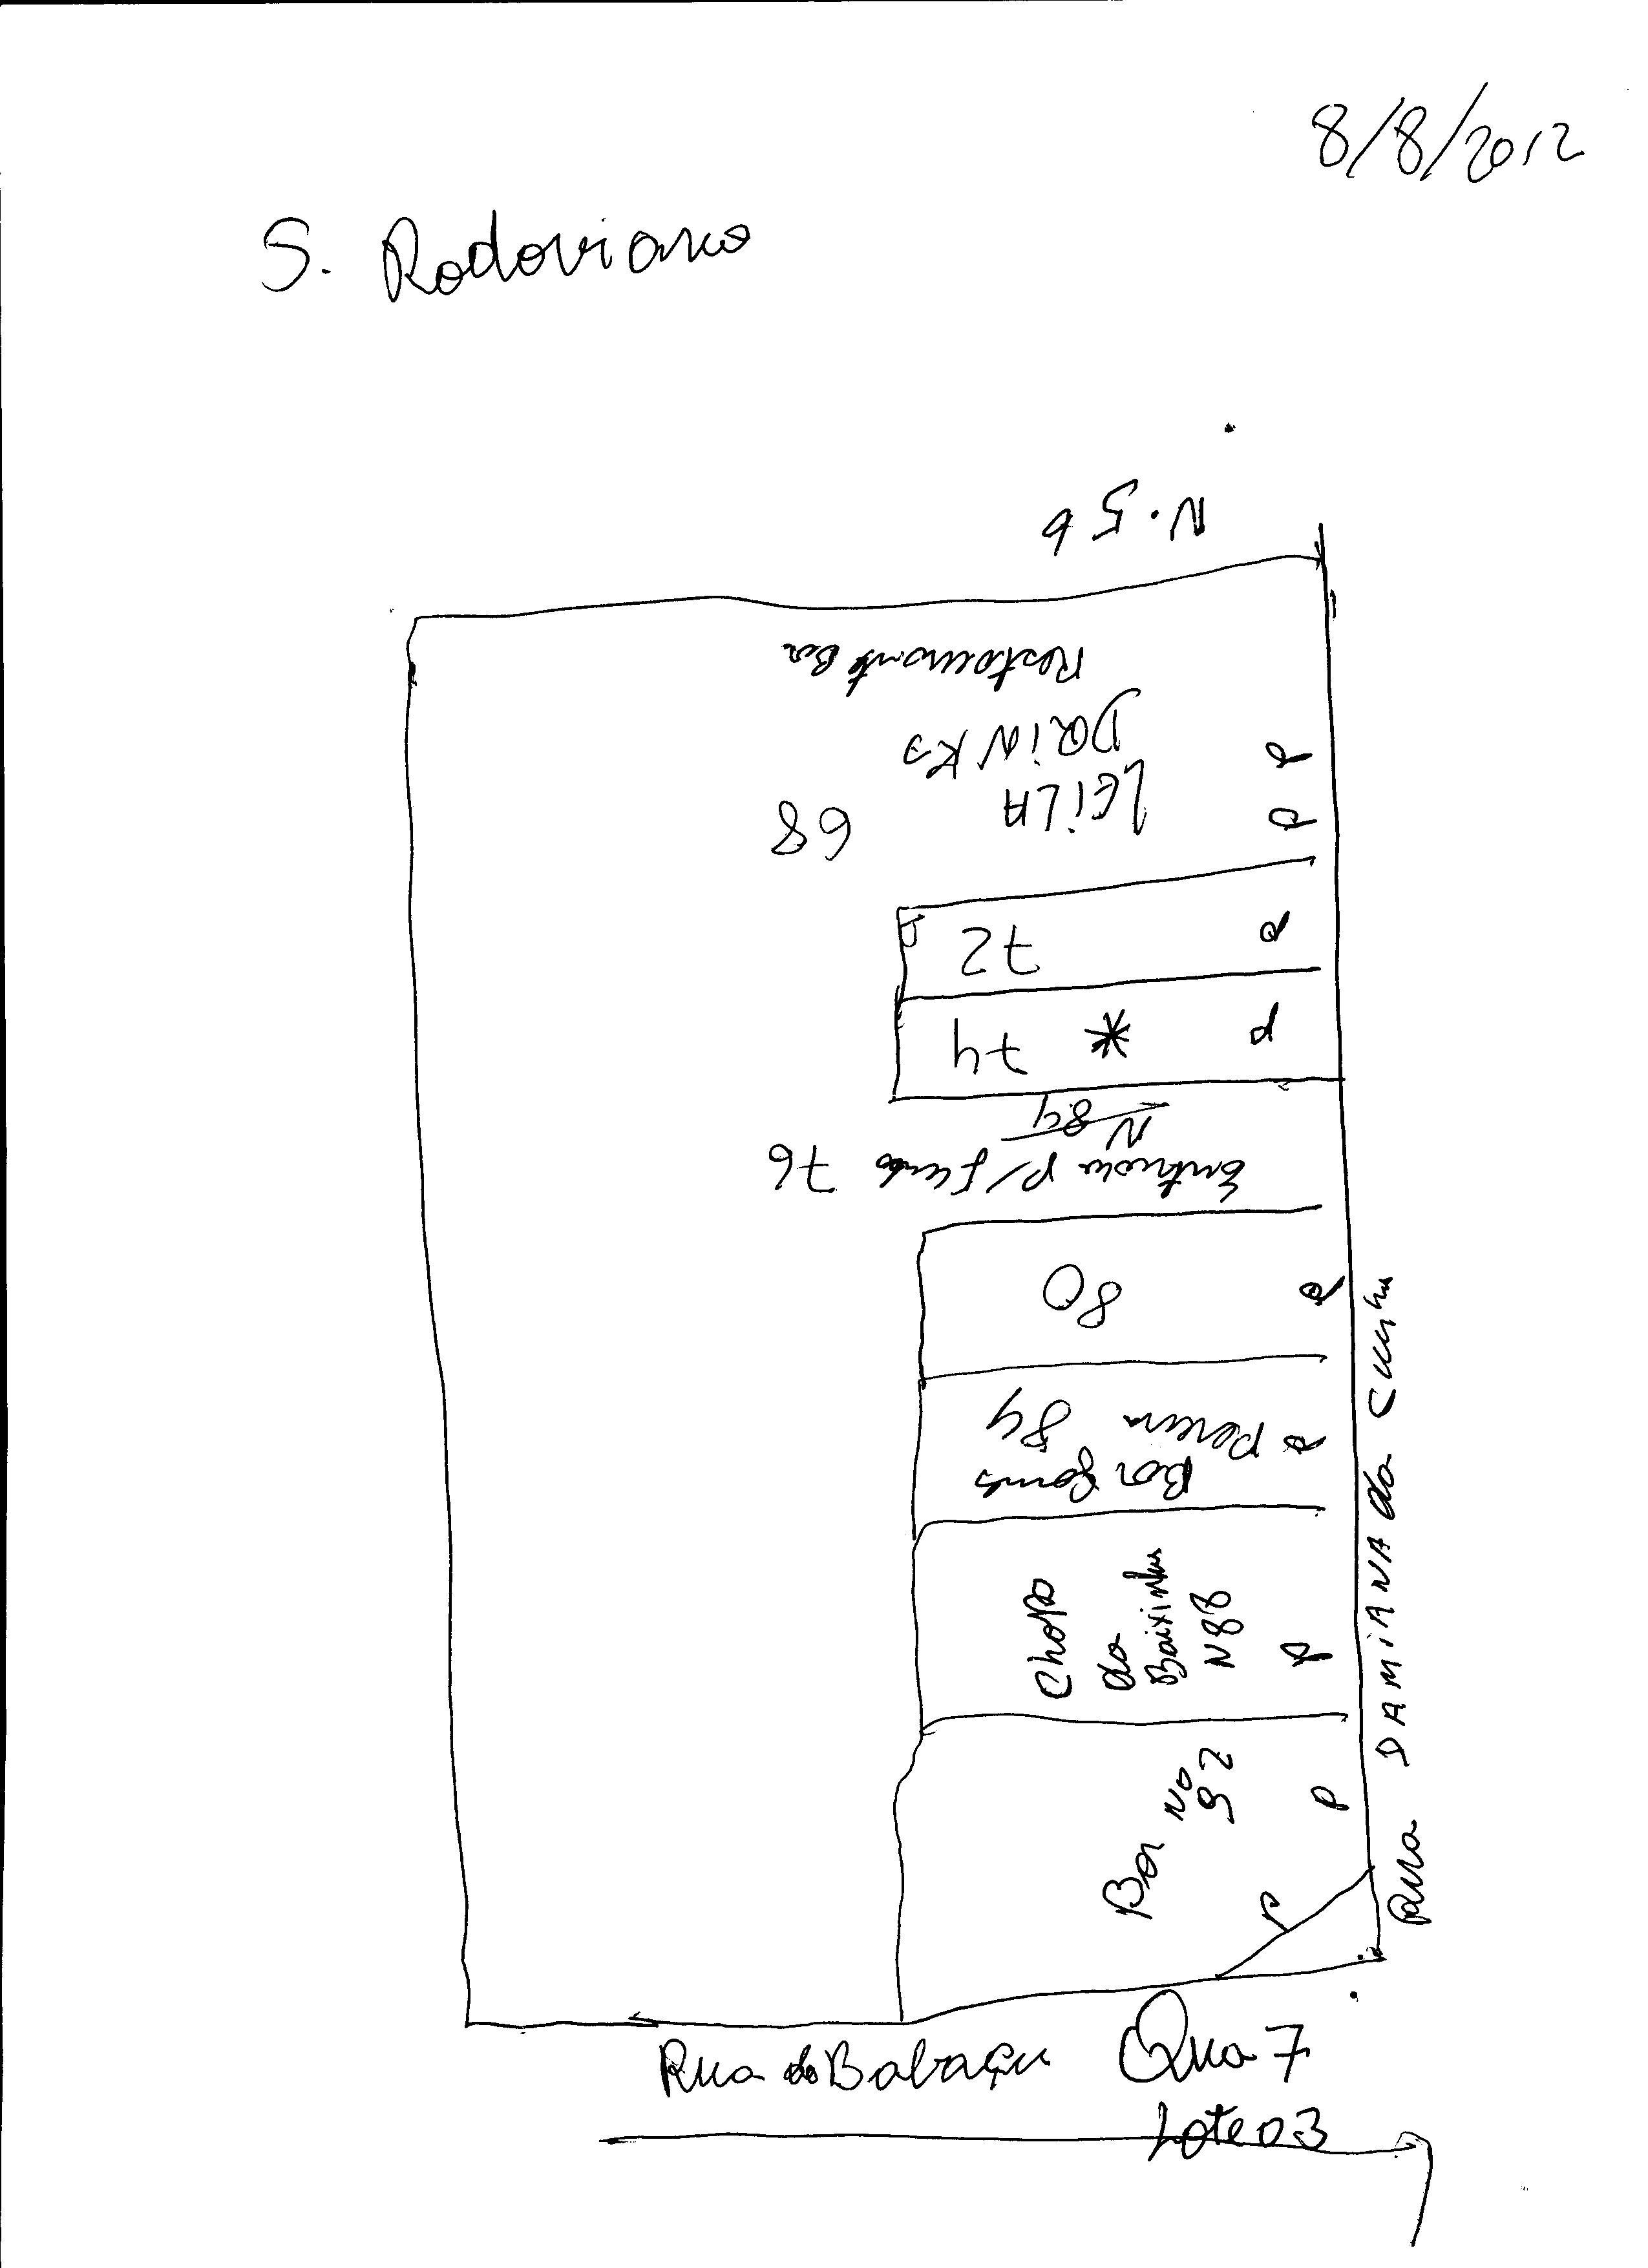 8/8/2012
S. Rodoviario
N. 56
Restaurante Bar
DRiNKs
LEiLA
68
P
P
72
P
74 * P
N 84
Entrada p/ fundo 76
80
P
84
Pereira P
Bar Gomes
Chopp
do
Baixinho
N 88
P
Bar No
92
P
P
Rua DAMiANA da Cunha
Rua do Babaçu
Qua 7
Lote 03